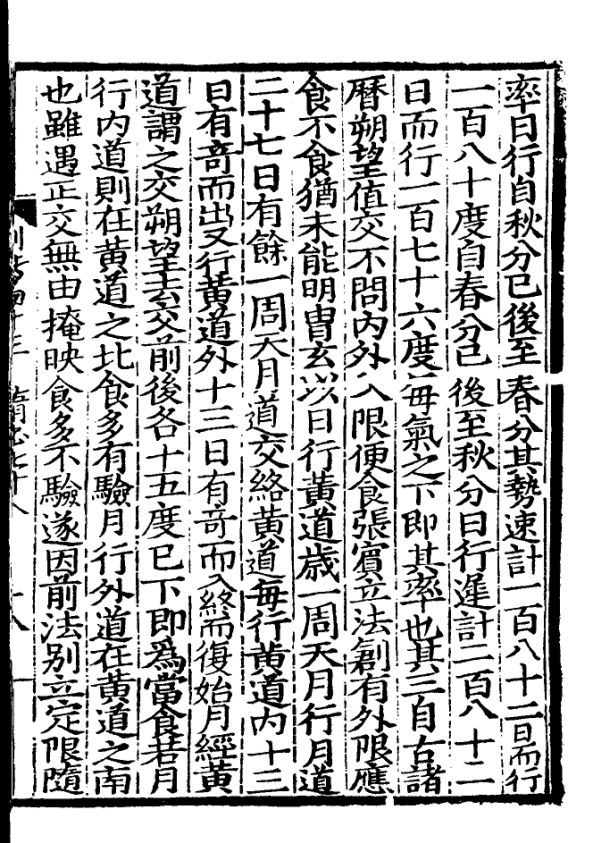 率日行自秋分已後至春分其勢速計一百八十二日而行
一百八十度自春分已後至秋分日行遲計二百八十二
日而行一百七十六度每氣之下即其率也其三自古諸
曆朔望值交不問内外入限便食張賓立法創有外限應
食不食猶未能明胄玄以日行黄道歲一周天月行月道
二十七日有餘一周天月道交絡黄道每行黄道内十三
日有竒而出又行黄道外十三日有竒而入終而復始月經黄
道謂之交朔望去交前後各十五度已下即爲當食若月
行内道則在黄道之北食多有驗月行外道在黄道之南
也雖遇正交無由掩映食多不驗遂因前法别立定限隨